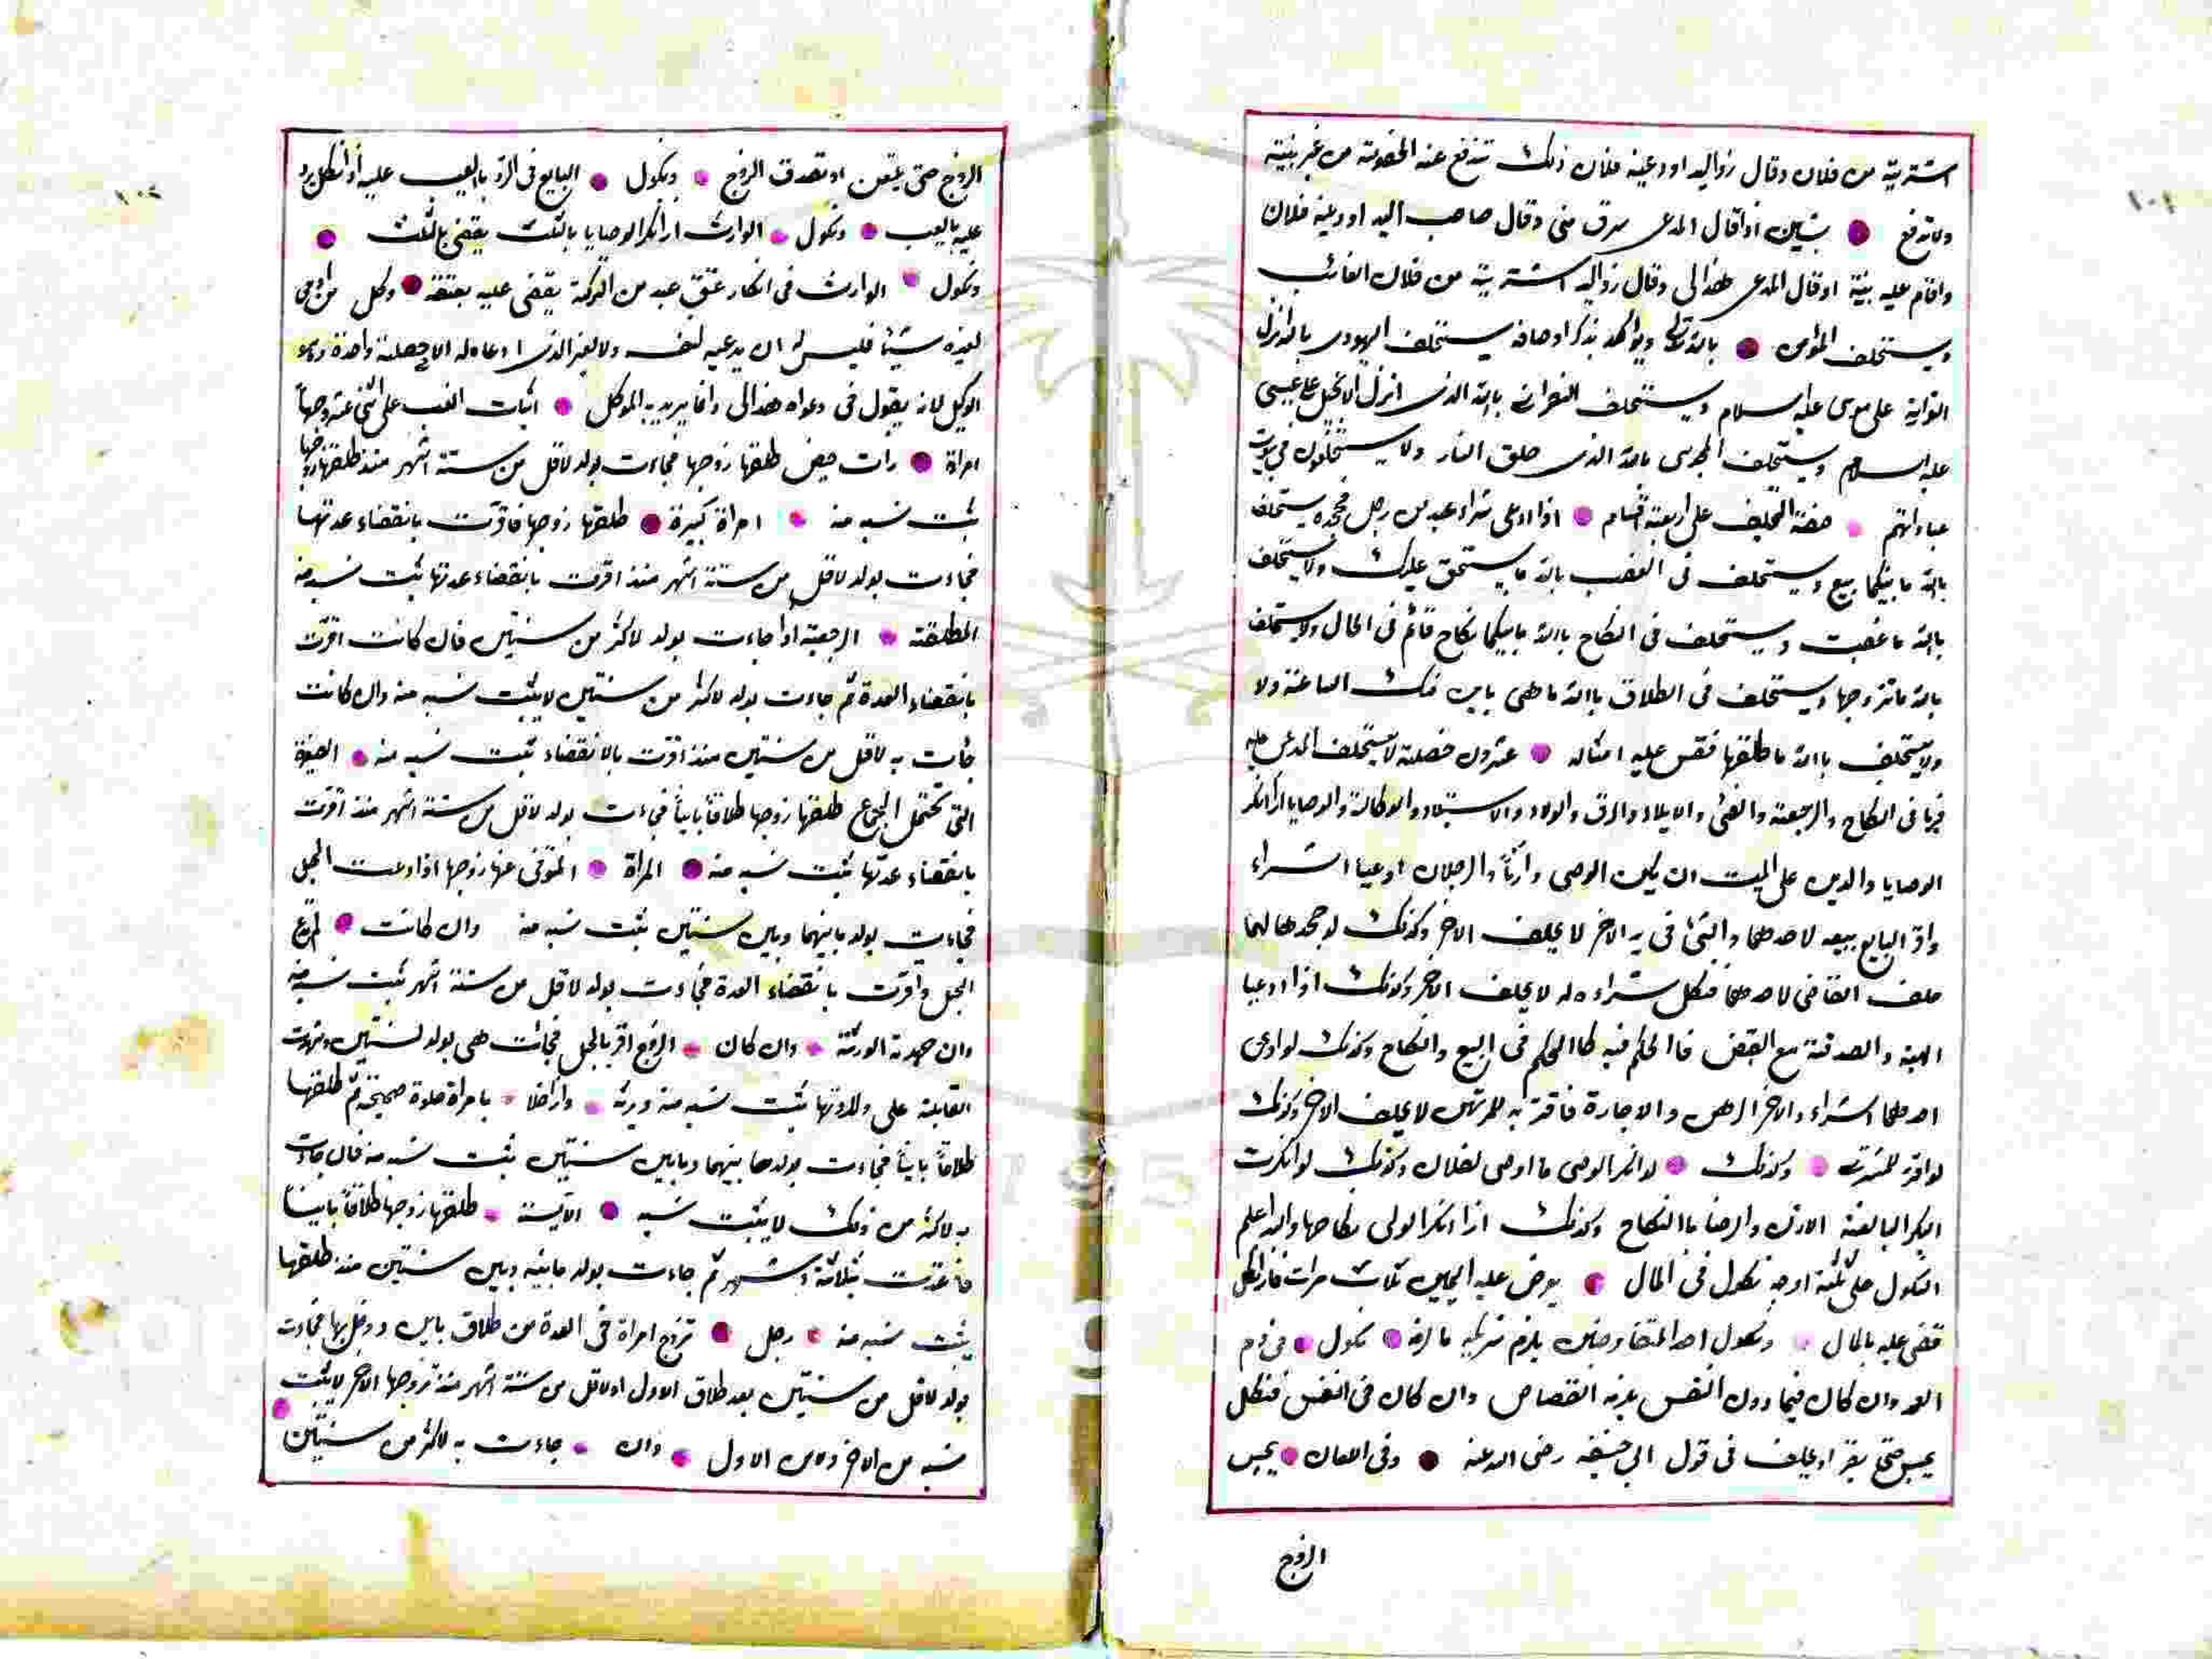 اشتريته من فلان وقال ذواليد اودعينه فلان ذلك تندفع عنه الخصومة من غير بينة
ولا تدفع بشيئين اذا قال المدعى سرق منى وقال صاحب اليد اودعينه فلان
واقام عليه بينة او قال المدعى هذا لى وقال ذواليد اشتريته من فلان الغائب
ويستحلف المؤمن بالله تعالى ويؤكد بذكر اوصافه يستحلف اليهودى بالله انزل
التوراية على موسى عليه السلام ويستحلف النصرانى بالله الذى انزل الانجيل على عيسى
عليه السلام ويستحلف المجوسى بالله الذى خلق النار ولا يستحلفون فى بيوت
عباداتهم صفة التحليف على اربعة اقسام اذا ادعى شراء عبد من رجل فجحده يستحلف
بالله ما بينكما بيع ويستحلف فى الغصب بالله ما يستحق عليك ولا يستحلف
بالله ما غصبت ويستحلف فى النكاح بالله ما بينكما نكاح قائم فى الحال ولا يستحلف
بالله ما تزوجها ويستحلف فى الطلاق باالله ما هى باين منك الساعة ولا
ولا يستحلف باالله ما طلقها فقس عليه امثاله عشرون خصلة لا يستحلف المدعى عليه
فيها فى النكاح والرجعة والفئ والايلاء والرق والولاء والاستيلاد والوكالة والوصايا اذا انكر
الوصايا والدين على الميت ان يكون الوصى وارثا والرجلان ادعيا اشراء
واقر البايع ببيعه لاحدهما والشئ فى يد الاخر لا يحلف الاخر وكذلك لو جحدهما لهما
حلف القاضى لاحدهما فنكل شراءه له لا يحلف الاخر وكذلك اذا ادعيا
الهبة والصدقة مع القبض فاالحكم فيه كاالحكم فى البيع والنكاح وكذلك لو ادعى
احدهما اشراء والاخر الرهن والاجارة فاقر به للمرتهن لا يحلف الاخر وكذلك
لو اقر للمشترى وكذلك لو انكر الوصى ما اوصى لفلان وكذلك لو انكرت
البكر البالغة الاذن والرضا باالنكاح وكذلك اذا انكر الولى نكاحها والله اعلم
النكول على ثلثة اوجه نكول فى المال يعرض عليه اليمين ثلاث مرات فاذا نكل
قضى عليه بالمال ونكول احد المتفاوضين يلزم شريكه ما لزمه نكول فى دم
العمد وان كان فيما دون النفس يلزمه القصاص وان كان فى النفس فنكل
يحبس حتى يقر او يحلف فى قول ابى حنيفه رضى الله عنه وفى اللعان يحبس
الزوج
الزوج حتى يلتعن او تصدق الزوج ونكول البايع فى الرد بالعيب عليه اذا نكل يرد
عليه بالعيب ونكول الوارث اذا انكر الوصايا بالثلث يقضى بالثلث
ونكول الوارث فى انكار عتق عبد من التركة يقضى عليه بعتقه وكل من ادعى
لغيره شيئا فليس له ان يدعيه لنفسه ولا لغير الذى ادعاه له الا خصلة واحدة دعوى
الوكيل لانه يقول فى دعواه هذا لى وانما يريد به الموكل اثبات النسب على اثنى عشر وجها
امراة رات حيض طلقها زوجها فجاءت بولد لاقل من ستة اشهر منذ طلقها زوجها
يثبت نسبه منه امراة كبيرة طلقها زوجها فاقرت بانقضاء عدتها
فجاءت بولد لاقل من ستة اشهر منذ اقرت بانقضاء عدتها ثبت نسبه منه
المطلقة الرجعية اذا جاءت بولد لاكثر من سنتين فان كانت اقرت
بانقضاء العدة ثم جاءت بولد لاكثر من سنتين لا يثبت نسبه منه وان كانت
جائت به لاقل من سنتين منذ اقرت بالانقضاء ثبت نسبه منه الصغيرة
التى تحتمل الجماع طلقها زوجها طلاقا باينا فجاءت بولد لاقل من ستة اشهر منذ اقرت
بانقضاء عدتها ثبت نسبه منه المراة المتوفى عنها زوجها اذا ادعت الحبل
فجاءت بولد ما بينهما وبين سنتين ثبت نسبه منه وان كانت لم تدع
الحبل واقرت بانقضاء العدة فجاءت بولد لاقل من ستة اشهر ثبت نسبه منه
وان جهدته الورثة وان كان الزوج اقر بالحبل فجائت هى بولد لسنتين وشهدت
القابلة على ولادتها ثبت نسبه منه ويرثه واذا خلا بامراة خلوة صحيحة ثم طلقها
طلاقا باينا فجاءت بولدها بينهما وبابين سنتين يثبت نسبه منه فان جاءت
به لاكثر من ذلك لا يثبت نسبه الآيسة طلقها زوجها طلاقا باينا
فاعتدت بثلاثة اشهر ثم جاءت بولد ما بينه وبين سنتين منذ طلقها
يثبت نسبه منه رجل تزوج امراة فى العدة من طلاق باين ودخل بها فجاءت
بولد لاقل من سنتين بعد طلاق الاول او لاقل من ستة اشهر منذ تزوجها الاخر لا يثبت
نسبه من الاخر ومن الاول وان جاءت به لاكثر من سنتين